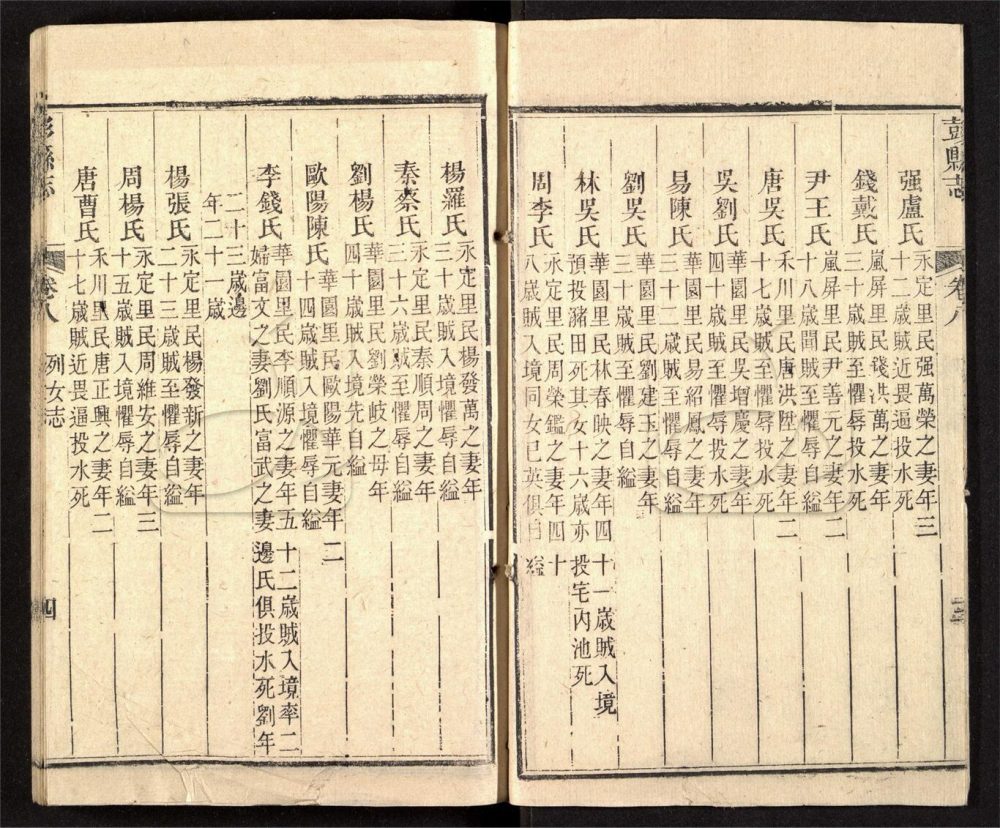 彭縣志 卷八
强盧氏 永定里民强萬榮之妻年三
十二歲賊近畏逼投水死
錢戴氏 嵐屏里民錢洪萬之妻年
三十歲賊至懼辱投水死
尹王氏 嵐屏里民尹善元之妻年二
十八歲聞賊至懼辱自縊
唐吳氏 禾川里民唐洪陞之妻年二
十七歲賊至懼辱投水死
吳劉氏 華園里民吳增慶之妻年
四十歲賊至懼辱投水死
易陳氏 華園里民易紹鳳之妻年
三十二歲賊至懼辱自縊
劉吳氏 華園里民劉建玉之妻年
三十歲賊至懼辱自縊
林吳氏 華園里民林春映之妻年四十一歲賊入境
預投瀦田死其女十六歲亦投宅内池死
周李氏 永定里民周榮鑑之妻年四十
八歲賊入境同女巳英俱自縊
楊羅氏 永定里民楊發萬之妻年
三十歲賊入境懼辱自縊
秦蔡氏 永定里民秦順周之妻年
三十六歲賊至懼辱自縊
劉楊氏 華園里民劉榮岐之母年
四十歲賊入境先自縊
歐陽陳氏 華園里民歐陽華元妻年二
十四歲賊入境懼辱自縊
李錢氏 華園里民李順源之妻年五十二歲賊入境率二
婦富文之妻劉氏富武之妻邊氏俱投水死劉年
二十三歲邊
年二十一歲
楊張氏 永定里民楊發新之妻年
二十三歲賊至懼辱自縊
周楊氏 永定里民周維安之妻年三
十五歲賊入境懼辱自縊
唐曹氏 禾川里民唐正興之妻年二
十七歲賊近畏逼投水死
彭縣志 卷八 列女志 四